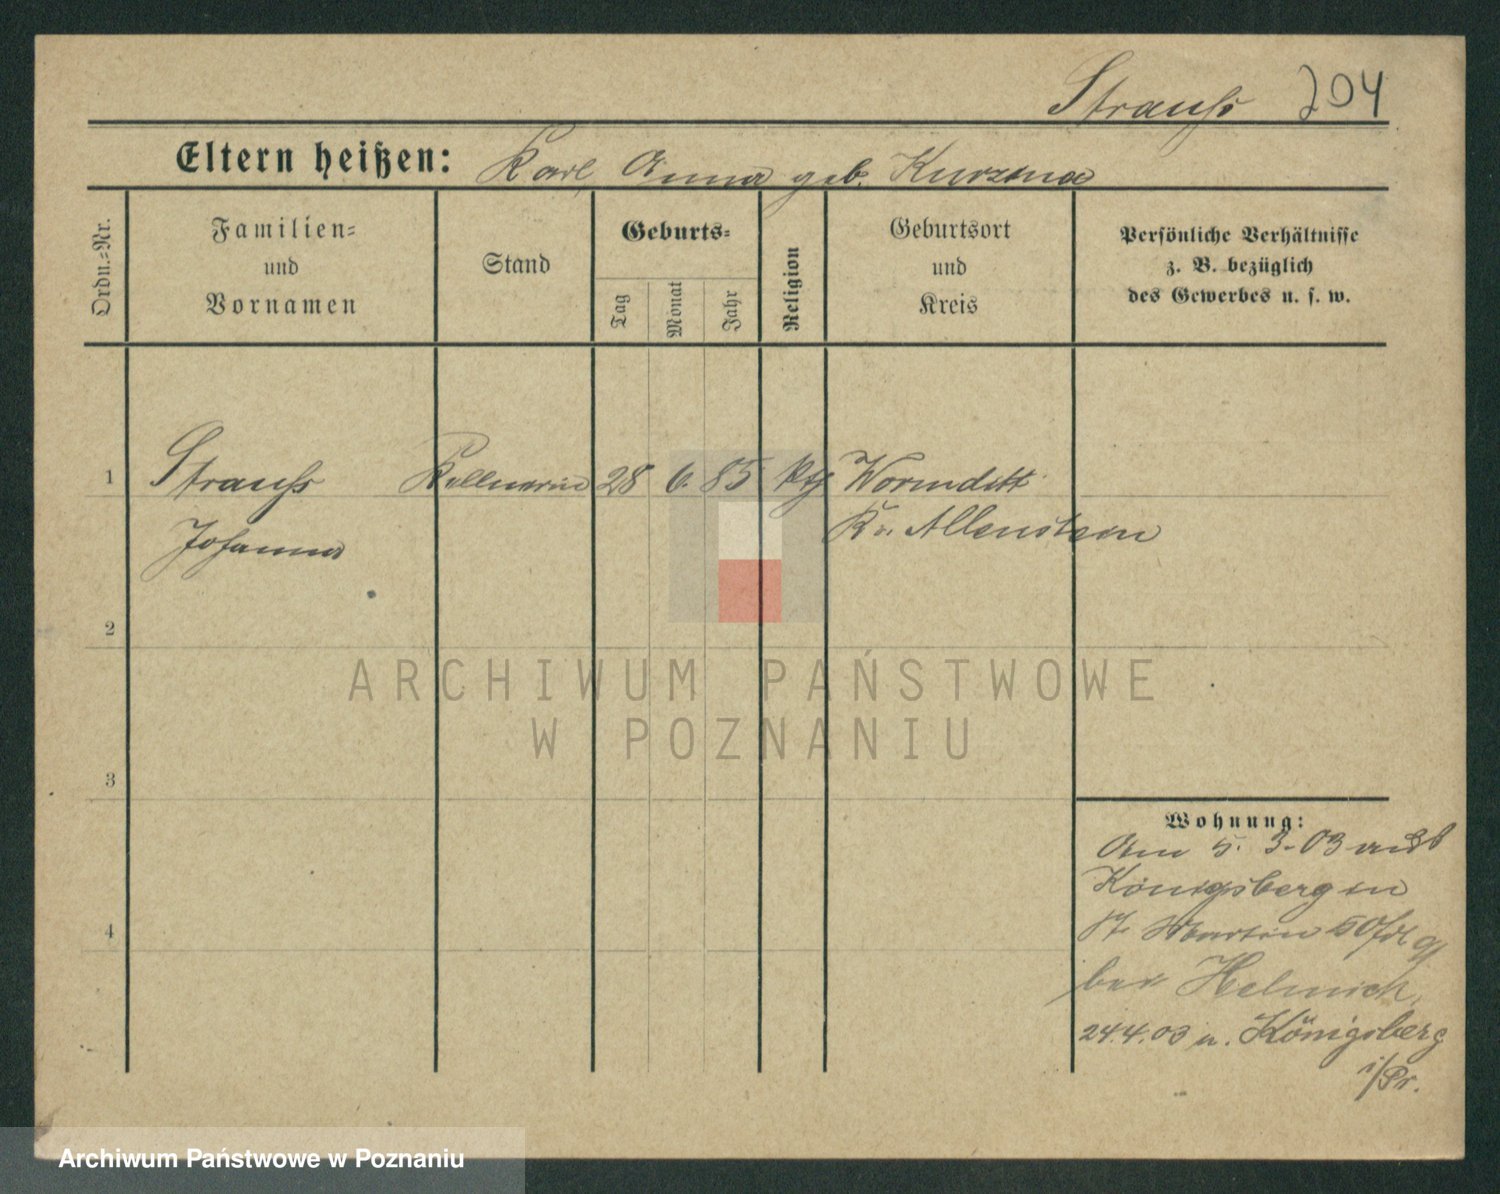 Strauß 204
Eltern heißen: Karl, Anna geb. Kurzma
Ordn.-Nr.
Familien-
und
Vornamen
Stand
Geburts-
Tag
Monat
Jahr
Religion
Geburtsort
und
Kreis
Persönliche Verhältnisse
z. B. bezüglich
des Gewerbes u. s. w.
1 Strauß Kellnerin 28 6. 85 kth Wormditt
Johanna Kr. Allenstein
2
3
4
Wohnung:
Am 5. 3. 03 aus
Königsberg in
St. Martin 50
bei Helmich,
24.4.03 n. Königsberg
i/Pr.
ARCHIWUM PAŃSTWOWE
W POZNANIU
Archiwum Państwowe w Poznaniu